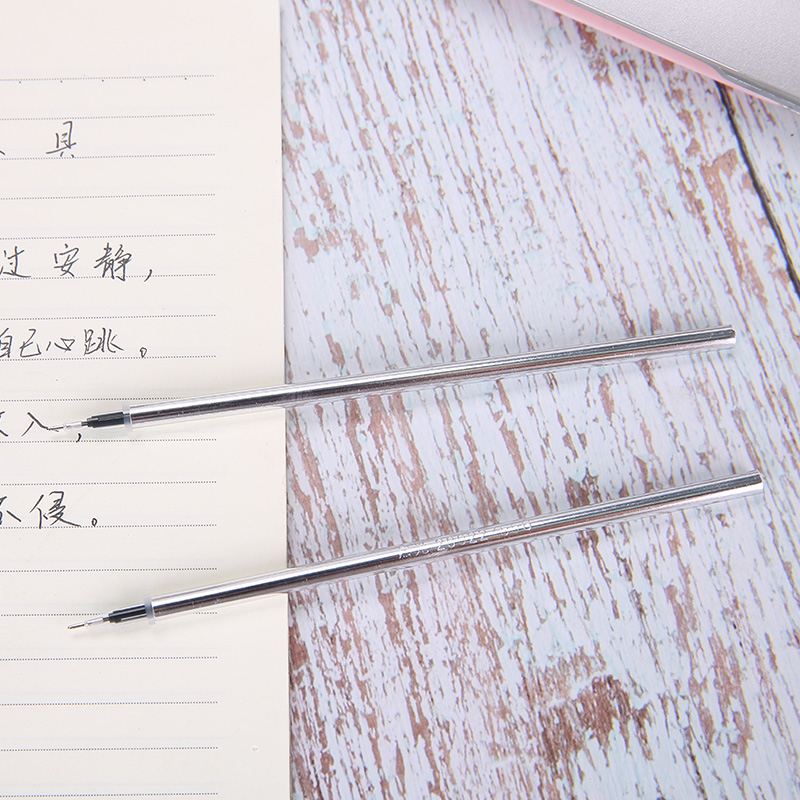 具
过安静，
自己心跳。
入，
不侵。